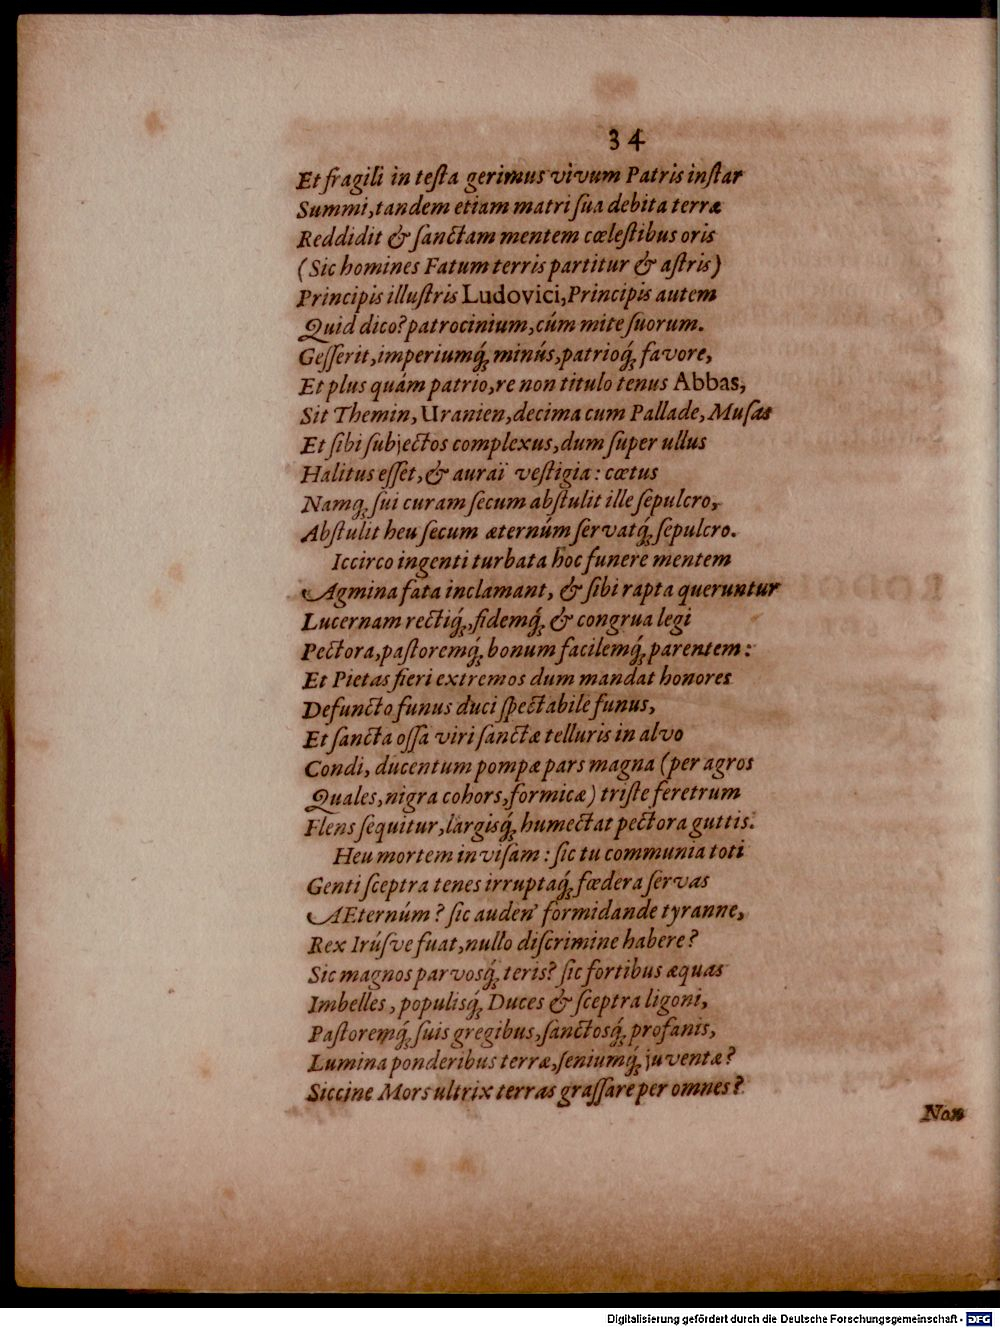 34
Et fragili in teſta gerimus vivum Patris inſtar
Summi, tandem etiam matri ſua debita terræ
Reddidit & ſanctam mentem cœleſtibus oris
(Sic homines Fatum terris partitur & aſtris)
Principis illuſtris Ludovici, Principis autem
Quid dico? patrocinium, cúm mite ſuorum.
Geſſerit, imperiumq́; minús, patrioq́; favore,
Et plus quám patrio, re non titulo tenus Abbas,
Sit Themin, Uranien, decima cum Pallade, Muſas
Et ſibi ſubjectos complexus, dum ſuper ullus
Halitus eſſet, & auraï veſtigia: cœtus
Namq; ſui curam ſecum abſtulit ille ſepulcro,
Abſtulit heu ſecum æternúm ſervatq́; ſepulcro.
Iccirco ingenti turbata hoc funere mentem
Agmina fata inclamant, & ſibi rapta queruntur
Lucernam rectiq́;, fidemq́; & congrua legi
Pectora, paſtoremq́; bonum facilemq́; parentem:
Et Pietas fieri extremos dum mandat honores
Defuncto funus duci ſpectabile funus,
Et ſancta oſſa viri ſanctæ telluris in alvo
Condi, ducentum pompæ pars magna (per agros
Quales, nigra cohors, formicæ) triſte feretrum
Flens ſequitur, largisq́; humectat pectora guttis.
Heu mortem inviſam: ſic tu communia toti
Genti ſceptra tenes irruptaq́; fœdera ſervas
AEternúm? ſic auden' formidande tyranne,
Rex Irúſve fuat, nullo diſcrimine habere?
Sic magnos parvosq́; teris? ſic fortibus æquas
Imbelles, populisq́; Duces & ſceptra ligoni,
Paſtoremq́; ſuis gregibus, ſanctosq́; profanis,
Lumina ponderibus terræ, ſeniumq́; juventæ?
Siccine Mors ultrix terras graſſare per omnes?
Non
Digitalisierung gefördert durch die Deutsche Forschungsgemeinschaft - DFG